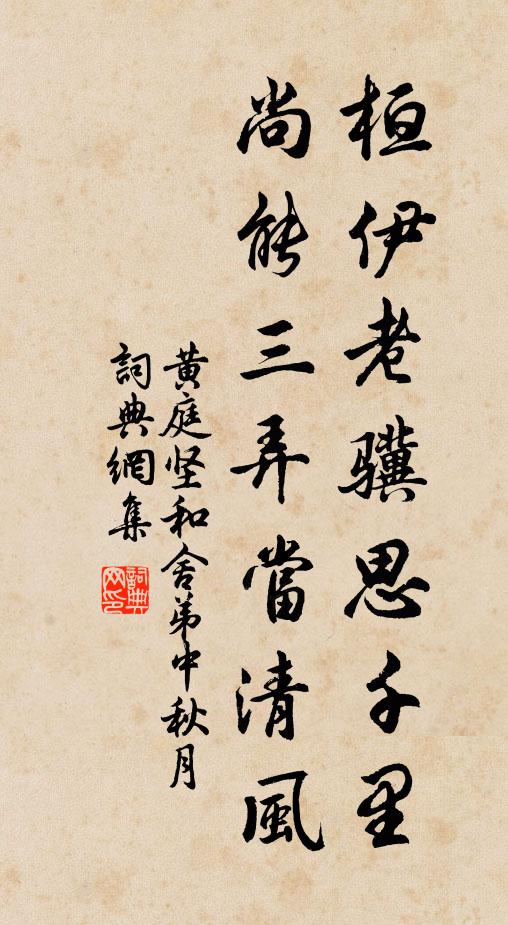 桓伊老骥思千里
尚能三弄當清風
黄庭坚和舍弟中秋月
詞典網集
詞典网印